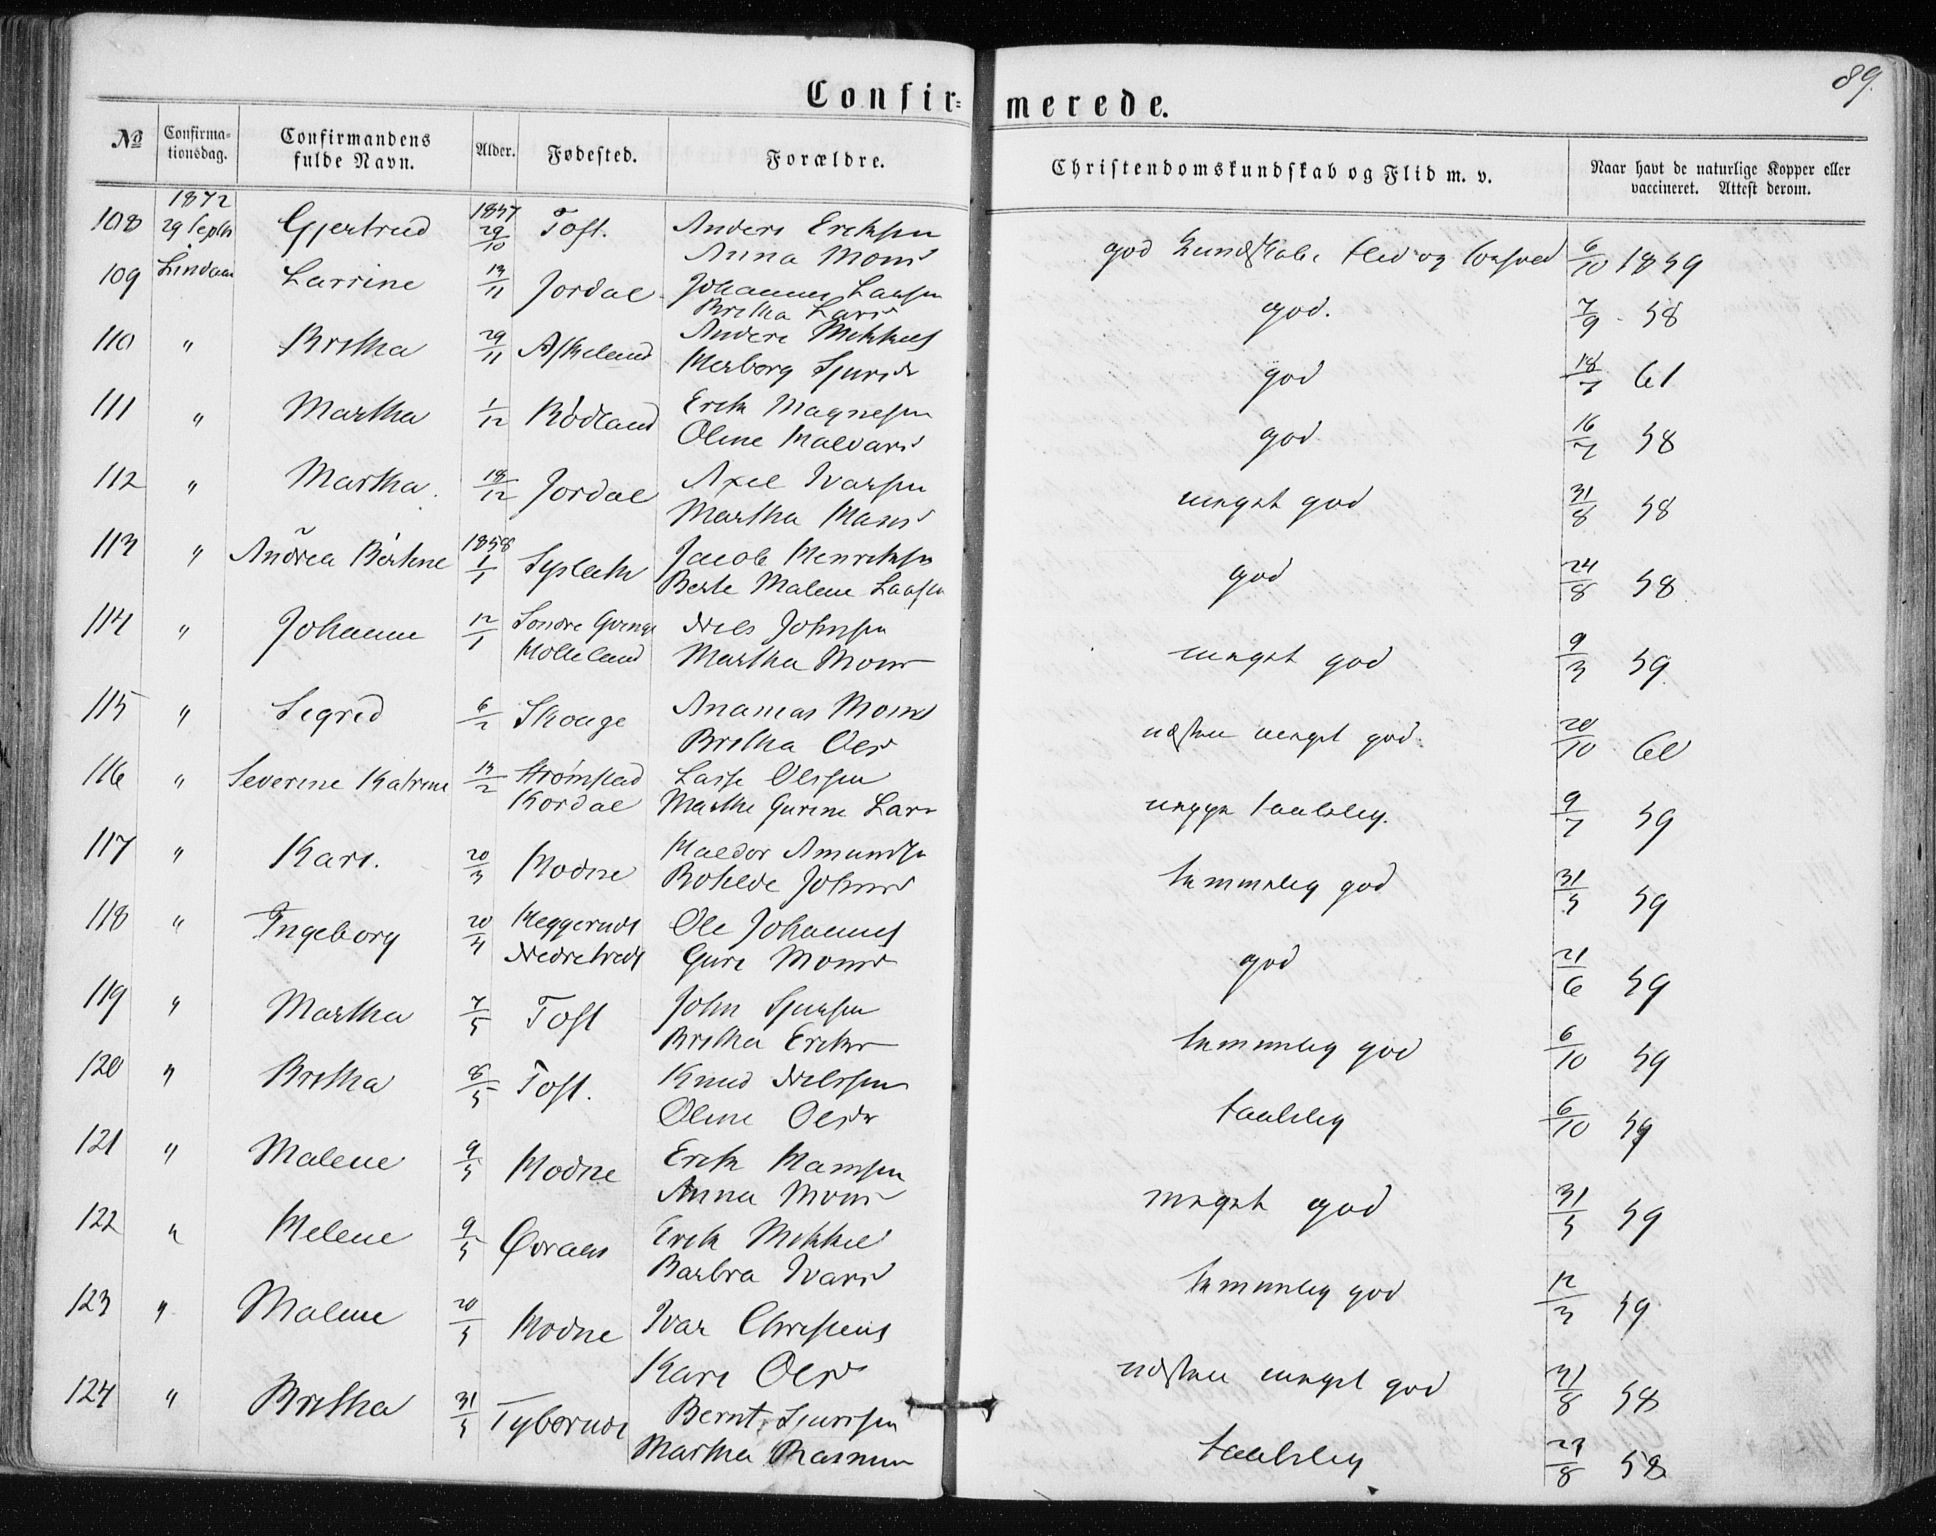 89.
Confir=merede.
№ Confirmationsdag. Confirmandens fulde Navn. Alder. Fødested. Forældre. Christendomskundskab og Flid m. v. Naar havt de naturlige Kopper eller vaccineret. Attest derom.
1872 1857
108 29 Septbr Gjertrud 29/10 Toft. Anders Eriksen god Kundskab, Flid og 6/10 1859
Anna Mons
109 Lindaas Larrine 13/11 Jordal Johannes Larsen god. 7/9 58
Britha Lars
110 " Britha 29/11 Askeland Anders Mikkels god 18/7 61
Herborg Sjursdr
111 " Martha 1/12 Rödland Erik Magnesen god 16/7 58
Oline Halvars
112 " Martha. 18/12 Jordal Axel Ivarsen meget god 31/8 58
Martha Hans
1858
113 " Andrea Bertine 1/1 Jacob Henriksen god 24/8 58
Berte Malene Larsen
114 " Johanne 12/1 Söndre Nils Johnsen meget god 9/3 59
Martha Mons
115 " Sigrid 6/2 Skouge Ananias Mons næsten meget god 20/10 60
Britha Ols
116 " Severine Katrine 13/2 Strömstad Lasse Olssen taalelig. 9/7 59
Kordal Marthe Gurine Lars
117 " Kari. 20/3 Hodne Haldor Amundsen temmelig god 31/5 59
Bothilde Johns
118 " Ingeborg 20/4 Heggernæs Ole Johannes god 21/6 59
Nedretvedt Guri Mons
119 " Martha 7/5 Toft John Sjursen temmelig god 6/10 59
Britha Eriks
120 " Britha 8/5 Toft. Knud Nilssen taalelig 6/10 59
Oline Olsdr
121 " Malene 9/5 Hodne Erik Hansen meget god 31/5 59
Anna Mons
122 " Helene 9/5 Qvraas Erik Mikkel temmelig god 12/3 59
Barbra Ivars
123 " Malene 20/5 Hodne Ivar Christens næsten meget god 31/8 58
Kari Ols
124 " Britha 31/5 Tybernæs Bernt Sjurssen taalelig 23/8 58
Martha Rasmus